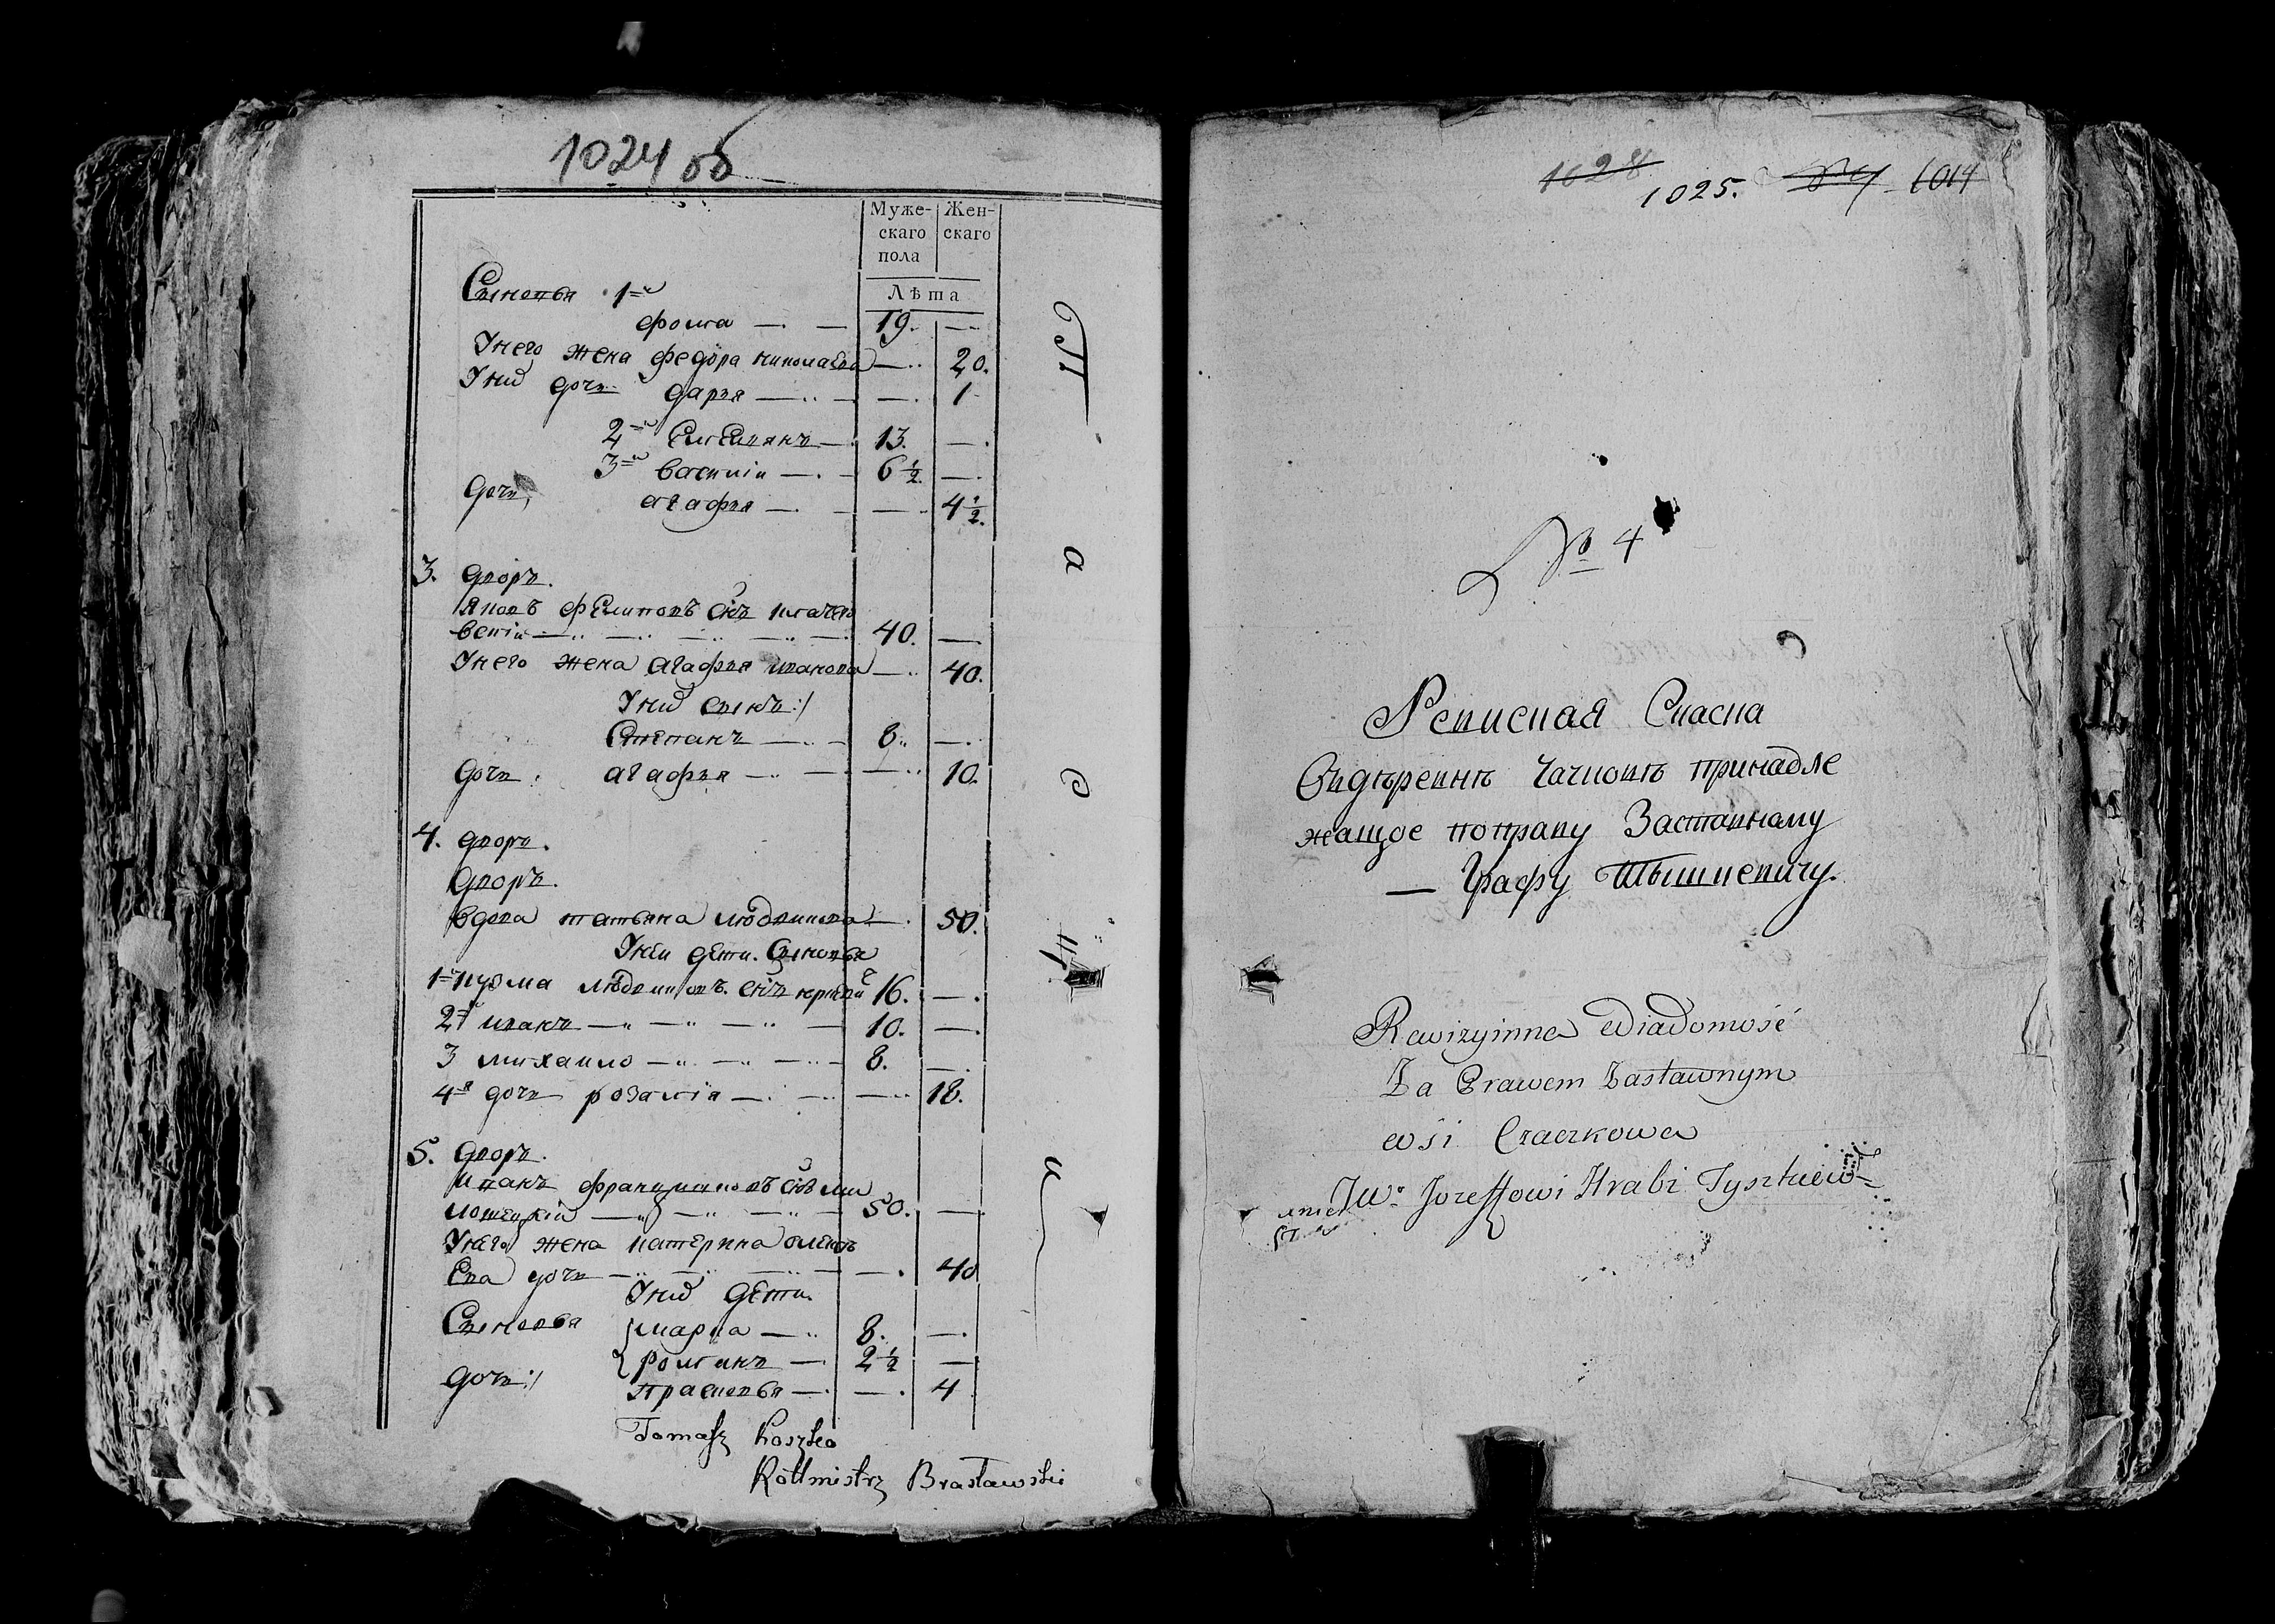 1024 об
Муже- Жен-
скаго скаго
пола
Лѣта
Сыновья 1=й
фома — — 19. —
Унего жена федора николаева — 20.
Уних дочь дарья — — 1
2=й Емельянъ — 13. —
3=й василіи — 6 1/2. —
дочь, агафья — — 4 1/2.
3. дворъ.
Яковъ филиповъ снъ
40. —
Унего жена агафья иванова — 40.
Уних сынъ:/
Степанъ — 8 —
дочь. агафья — — 10.
4. дворъ.
дворъ.
вдова татьяна — 50.
Унеи дети. Сыновья
1=й кузма снъ 16. —
2й иванъ — 10. —
3 михаило — 8. —
4=я дочь розалия — — 18.
5. дворъ.
Иванъ францишковъ снъ
50. —
Унего жена катерина
Ева дочь — — 40
Уних дети.
Сыновья марко — 8. —
романъ — 2 1/2 —
дочь:/ прасковья — — 4
Tomasz Koszko
Rottmistrz Brasławski
П
а
с
к
и
1628
1025. 1014
№ 4
Ревиская Скаска
Оъдѣревнѣ Чачковѣ принадле
жащое поправу Заставному
— Графу Тышкевичу.
Rewizyinna Wiadomość
Za Prawem Zastawnym
wsi Czaczkowa
JW. Jozeffowi Hrabi Tyszkiew=